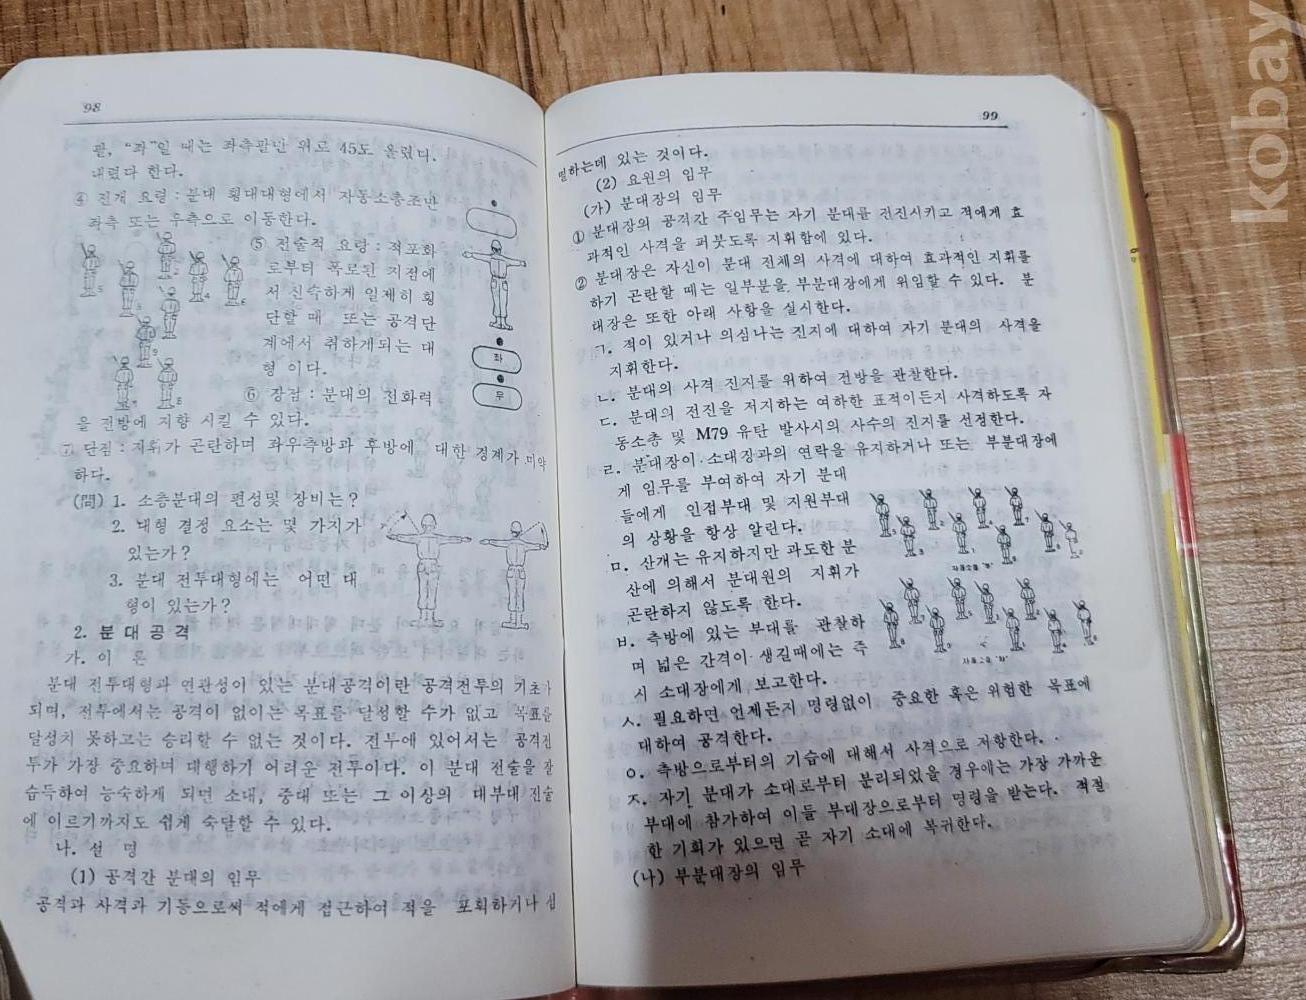 98
팔, "좌"일 때는 좌측팔만 위로 45도 올렸다.
내렸다 한다.
④ 전개 요령 : 분대 횡대대형에서 자동소총조만
좌측 또는 우측으로 이동한다.
⑤ 전술적 요망 : 적포화
로부터 폭로된 지점에
서 신속하게 일제히 횡
단할 때 또는 공격단
계에서 취하게되는 대
형 이다.
좌
우
⑥ 장점 : 분대의 전화력
을 전방에 지향 시킬 수 있다.
⑦ 단점 : 지휘가 곤란하며 좌우측방과 후방에 대한 경계가 미약
하다.
(問) 1. 소총분대의 편성및 장비는?
2. 대형 결정 요소는 몇 가지가
있는가?
3. 분대 전투대형에는 어떤 대
형이 있는가?
2. 분대공격
가. 이 론
분대 전투대형과 연관성이 있는 분대공격이란 공격전투의 기초가
되며, 전투에서는 공격이 없이는 목표를 달성할 수가 없고 목표를
달성치 못하고는 승리할 수 없는 것이다. 전투에 있어서는 공격전
투가 가장 중요하며 대행하기 어려운 전투이다. 이 분대 전술을 잘
습득하여 능숙하게 되면 소대, 중대 또는 그 이상의 대부대 전술
에 이르기까지도 쉽게 숙달할 수 있다.
나. 설 명
(1) 공격간 분대의 임무
공격과 사격과 기동으로써 적에게 접근하여 적을 포획하거나 섬
99
멸하는데 있는 것이다.
(2) 요원의 임무
(가) 분대장의 임무
① 분대장의 공격간 주임무는 자기 분대를 전진시키고 적에게 효
과적인 사격을 퍼붓도록 지휘함에 있다.
② 분대장은 자신이 분대 전체의 사격에 대하여 효과적인 지휘를
하기 곤란할 때는 일부분을 부분대장에게 위임할 수 있다. 분
대장은 또한 아래 사항을 실시한다.
ㄱ. 적이 있거나 의심나는 진지에 대하여 자기 분대의 사격을
지휘한다.
ㄴ. 분대의 사격 진지를 위하여 전방을 관찰한다.
ㄷ. 분대의 전진을 저지하는 여하한 표적이든지 사격하도록 자
동소총 및 M79 유탄 발사시의 사수의 진지를 선정한다.
ㄹ. 분대장이 소대장과의 연락을 유지하거나 또는 부분대장에
게 임무를 부여하여 자기 분대
들에게 인접부대 및 지원부대
의 상황을 항상 알린다.
ㅁ. 산개는 유지하지만 과도한 분
산에 의해서 분대원의 지휘가
곤란하지 않도록 한다.
ㅂ. 측방에 있는 부대를 관찰하
며 넓은 간격이 생길때에는 즉
시 소대장에게 보고한다.
자동소총 "우"
자동소총 "좌"
ㅅ. 필요하면 언제든지 명령없이 중요한 혹은 위험한 목표에
대하여 공격한다.
ㅇ. 측방으로부터의 기습에 대해서 사격으로 저항한다.
ㅈ. 자기 분대가 소대로부터 분리되었을 경우에는 가장 가까운
부대에 참가하여 이들 부대장으로부터 명령을 받는다. 적절
한 기회가 있으면 곧 자기 소대에 복귀한다.
(나) 부분대장의 임무
kobay